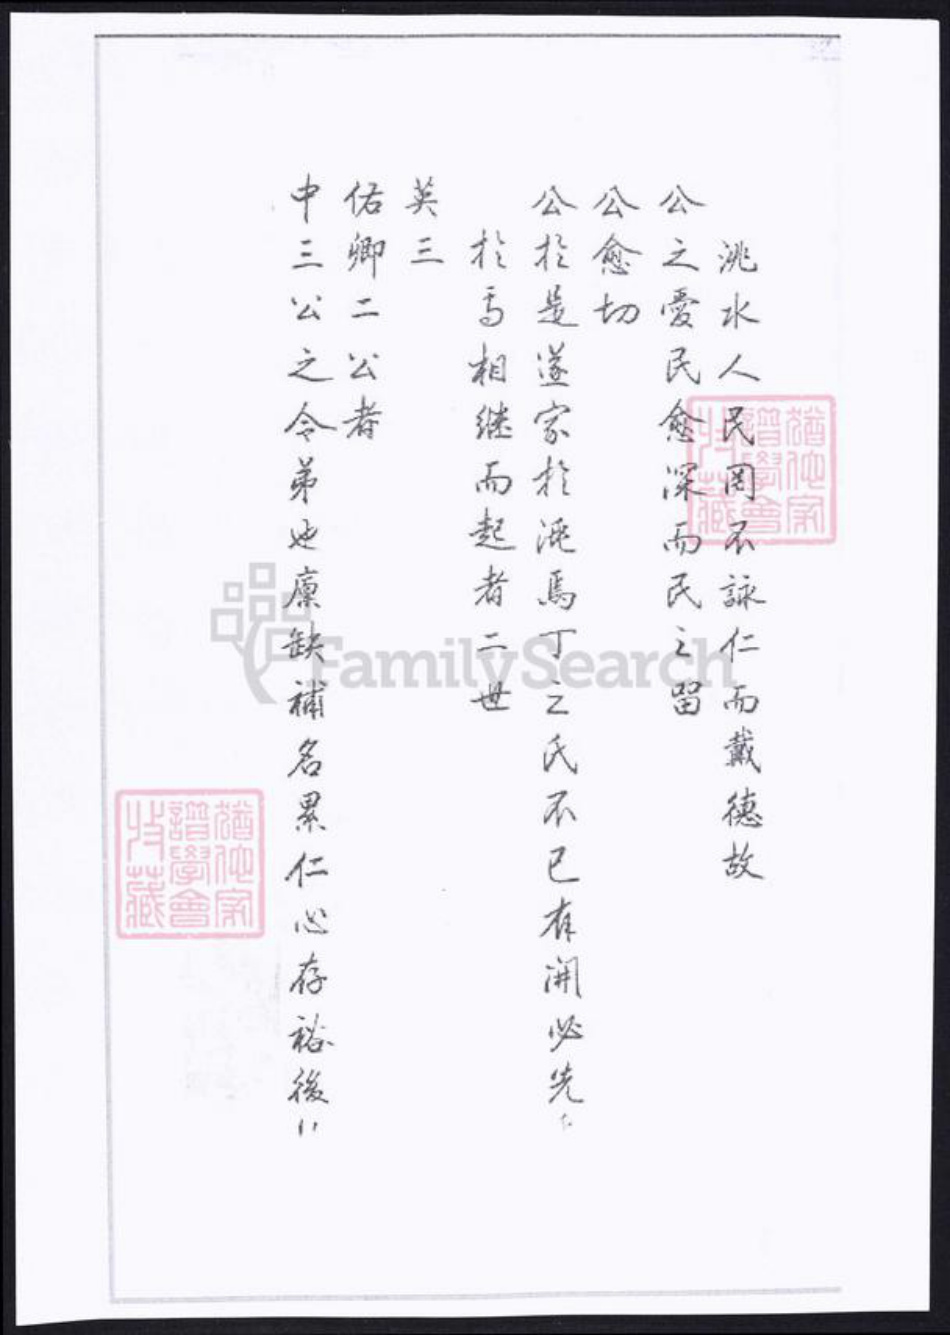 洮水人民罔不詠仁而戴德故
公之愛民愈深而民之留
公愈切
公於是遂家於洮焉丁之氏不已有開必先
於焉相继而起者二世
英三
佑卿二公者
中三公之令弟也廪缺補名累仁心存裕後
FamilySearch
譜學會
收藏
譜學會
收藏